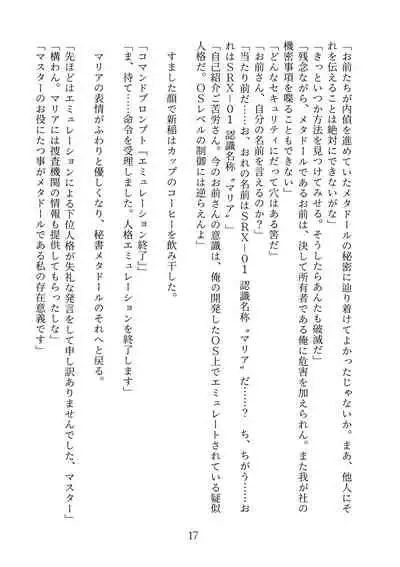 「お前たちが内偵を進めていたメタドールの秘密に辿り着けてよかったじゃないか。まあ、他人にそ
れを伝えることは絶対にできないがな」
「きっといつか方法を見つけてみせる。そうしたらあんたも破滅だ」
「残念ながら、メタドールであるお前は、決して所有者である俺に危害を加えられん。また我が社の
機密事項を喋ることもできない」
「どんなセキュリティにだって穴はある筈だ」
「お前さん、自分の名前を言えるのか？」
「当たり前だ……お、おれの名前はＳＲＸ－０１　認識名称〝マリア〟だ……？　ち、ちがう……お
れはＳＲＸ－０１　認識名称〝マリア〟」
「自己紹介ご苦労さん。今のお前さんの意識は、俺の開発したＯＳ上でエミュレートされている疑似
人格だ。ＯＳレベルの制御には逆らえんよ」
すました顔で新稲はカップのコーヒーを飲み干した。
「コマンドプロンプト『エミュレーション終了』」
「ま、待て……命令を受理しました。人格エミュレーションを終了します」
マリアの表情がふわりと優しくなり、秘書メタドールのそれへと戻る。
「先ほどはエミュレーションによる下位人格が失礼な発言をして申し訳ありませんでした、マスター」
「構わん。マリアには捜査機関の情報も提供してもらったしな」
「マスターのお役にたつ事がメタドールである私の存在意義です」
17